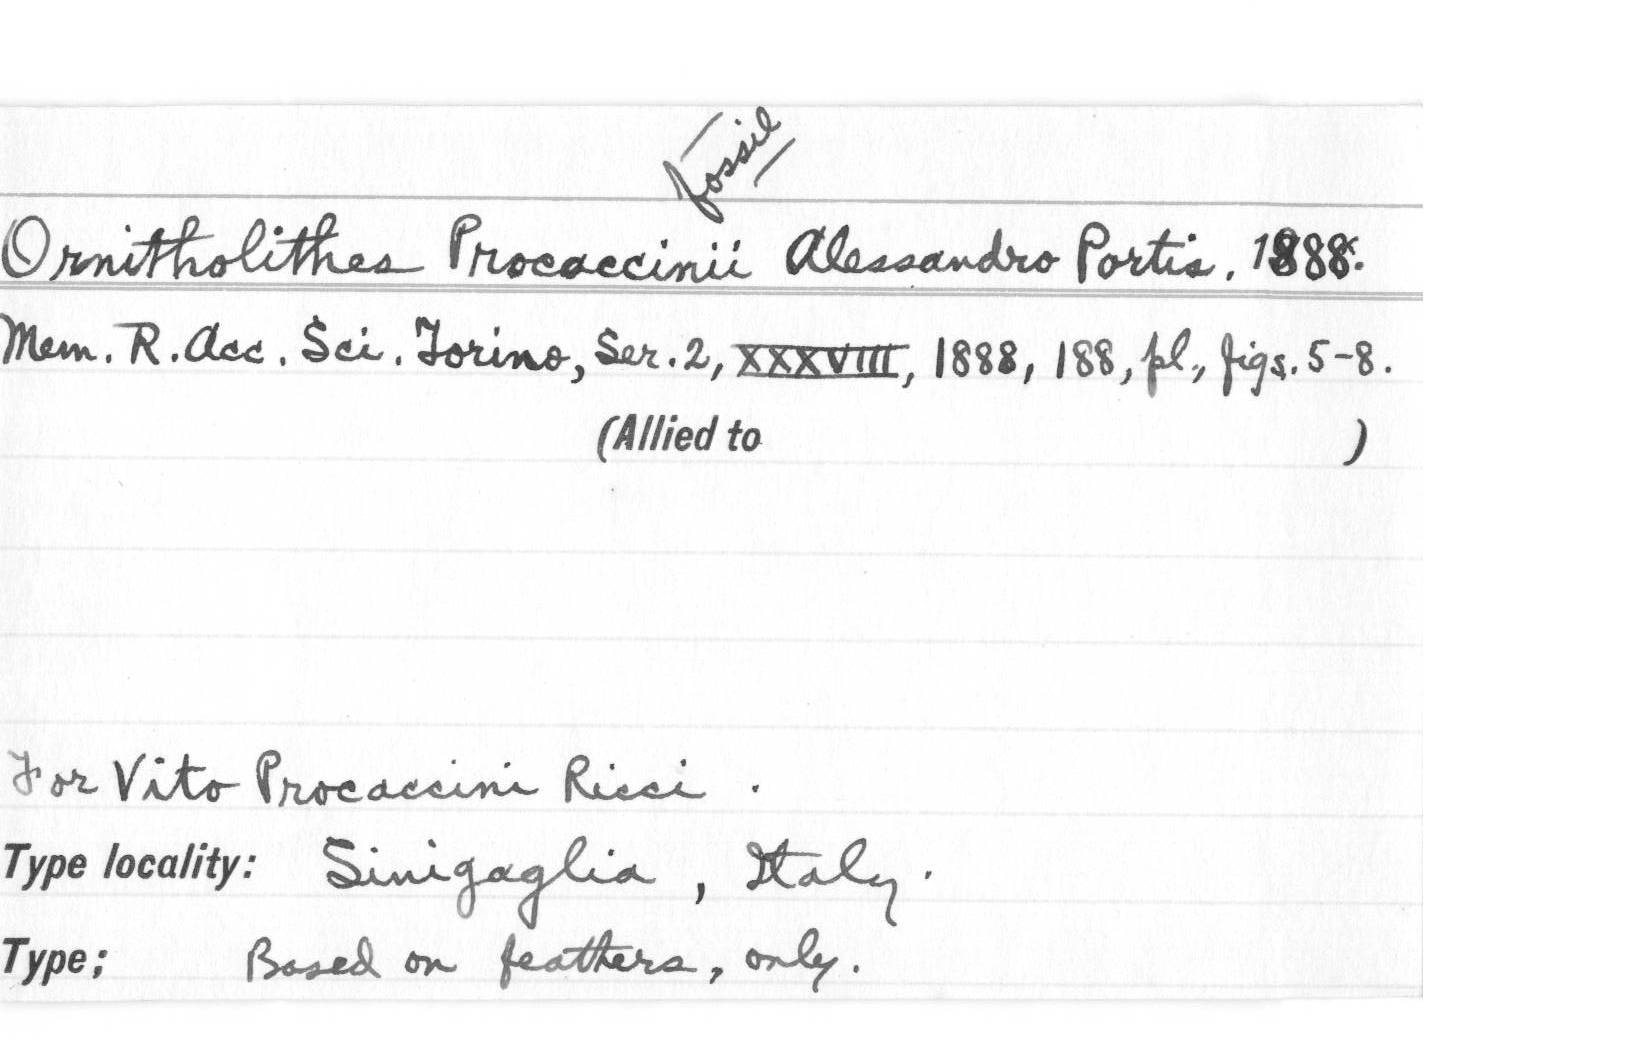 fossil
Ornitholithes Procaccinii Alessandro Portis, 1888.
Mem. R. Acc. Sci. Torino, Ser. 2, XXXVIII, 1888, 188, pl., figs. 5-8.
(Allied to )
For Vito Procaccini Ricci.
Type locality: Sinigaglia, Italy.
Type; Based on feathers, only.